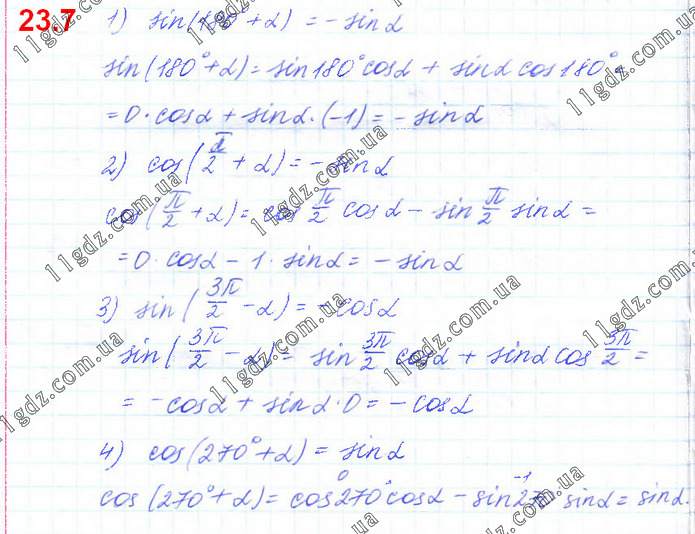 23.7
1) sin(180°+α) = -sinα
sin(180°+α) = sin180°cosα + sinα cos180° =
= 0·cosα + sinα·(-1) = -sinα
2) cos(π/2 + α) = -sinα
cos(π/2 + α) = cos π/2 cosα - sin π/2 sinα =
= 0·cosα - 1·sinα = -sinα
3) sin(3π/2 - α) = -cosα
sin(3π/2 - α) = sin 3π/2 cosα + sinα cos 3π/2 =
= -cosα + sinα·0 = -cosα
4) cos(270°+α) = sinα
0 -1
cos(270°+α) = cos270°cosα - sin270° sinα = sinα.
11gdz.com.ua
11gdz.com.ua
11gdz.com.ua
11gdz.com.ua
11gdz.com.ua
11gdz.com.ua
11gdz.com.ua
11gdz.com.ua
11gdz.com.ua